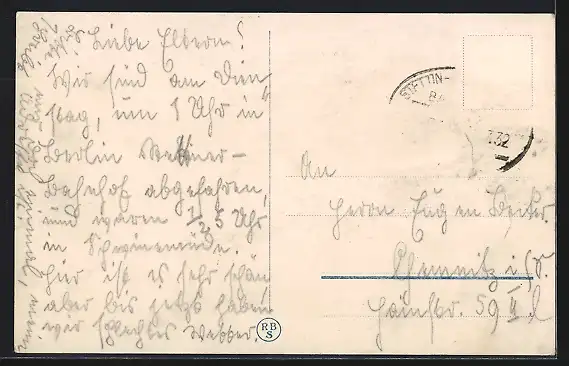 Liebe Eltern!
Wir sind am Diens-
tag, um 1 Uhr in
Berlin Stettiner-
Bahnhof abgefahren,
und waren 1/2 5 Uhr
in Swinemünde.
Hier ist es sehr schön
aber bis jetzt haben
wir schlechtes Wetter.
STETTIN-
.32
An
Herrn Eugen
Chemnitz i/S.
Hainstr. 59 II l
RB
S